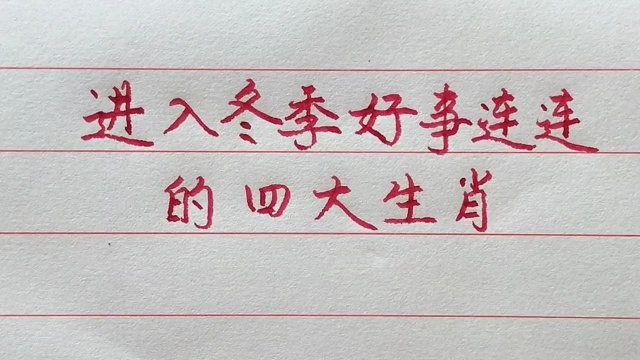 进入冬季好事连连
的四大生肖